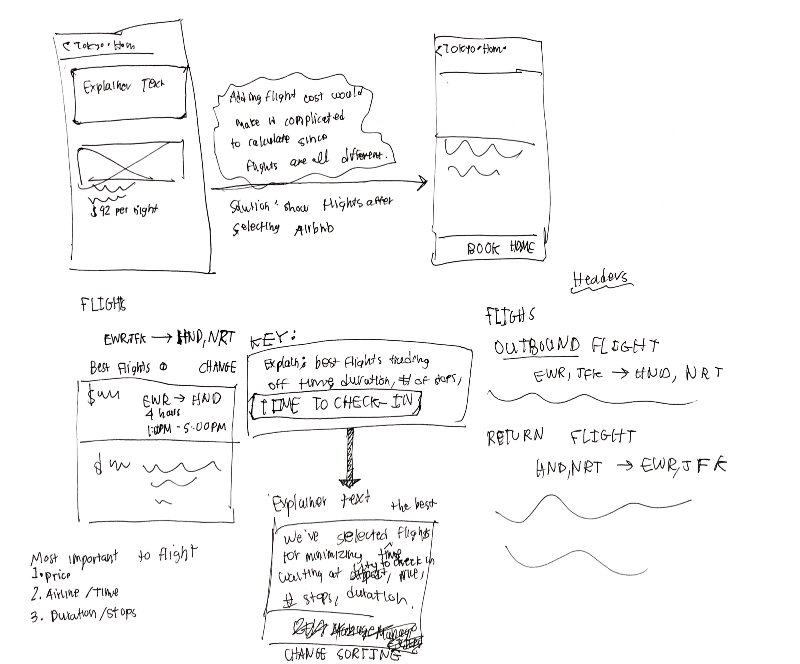 < Tokyo · Hom
Explainer Text
$92 per night
Adding flight cost would
make it complicated
to calculate since
flights are all different.
Solution: show flights after
selecting Airbnb
< Tokyo · Hom
BOOK HOME
FLIGHTS
EWR, JFK → HND, NRT
Best Flights
CHANGE
$
EWR → HND
4 hours
1:00PM - 5:00PM
$
KEY:
Explain: best flights trading
off timing duration, # of stops,
TIME TO CHECK-IN
Explainer text
the best
We've selected flights
for minimizing time
waiting at to check in
price,
# stops, duration.
CHANGE SORTING
Headers
FLIGHTS
OUTBOUND FLIGHT
EWR, JFK → HND, NRT
RETURN FLIGHT
HND, NRT → EWR, JFK
Most important to flight
1. Price
2. Airline / Time
3. Duration / Stops